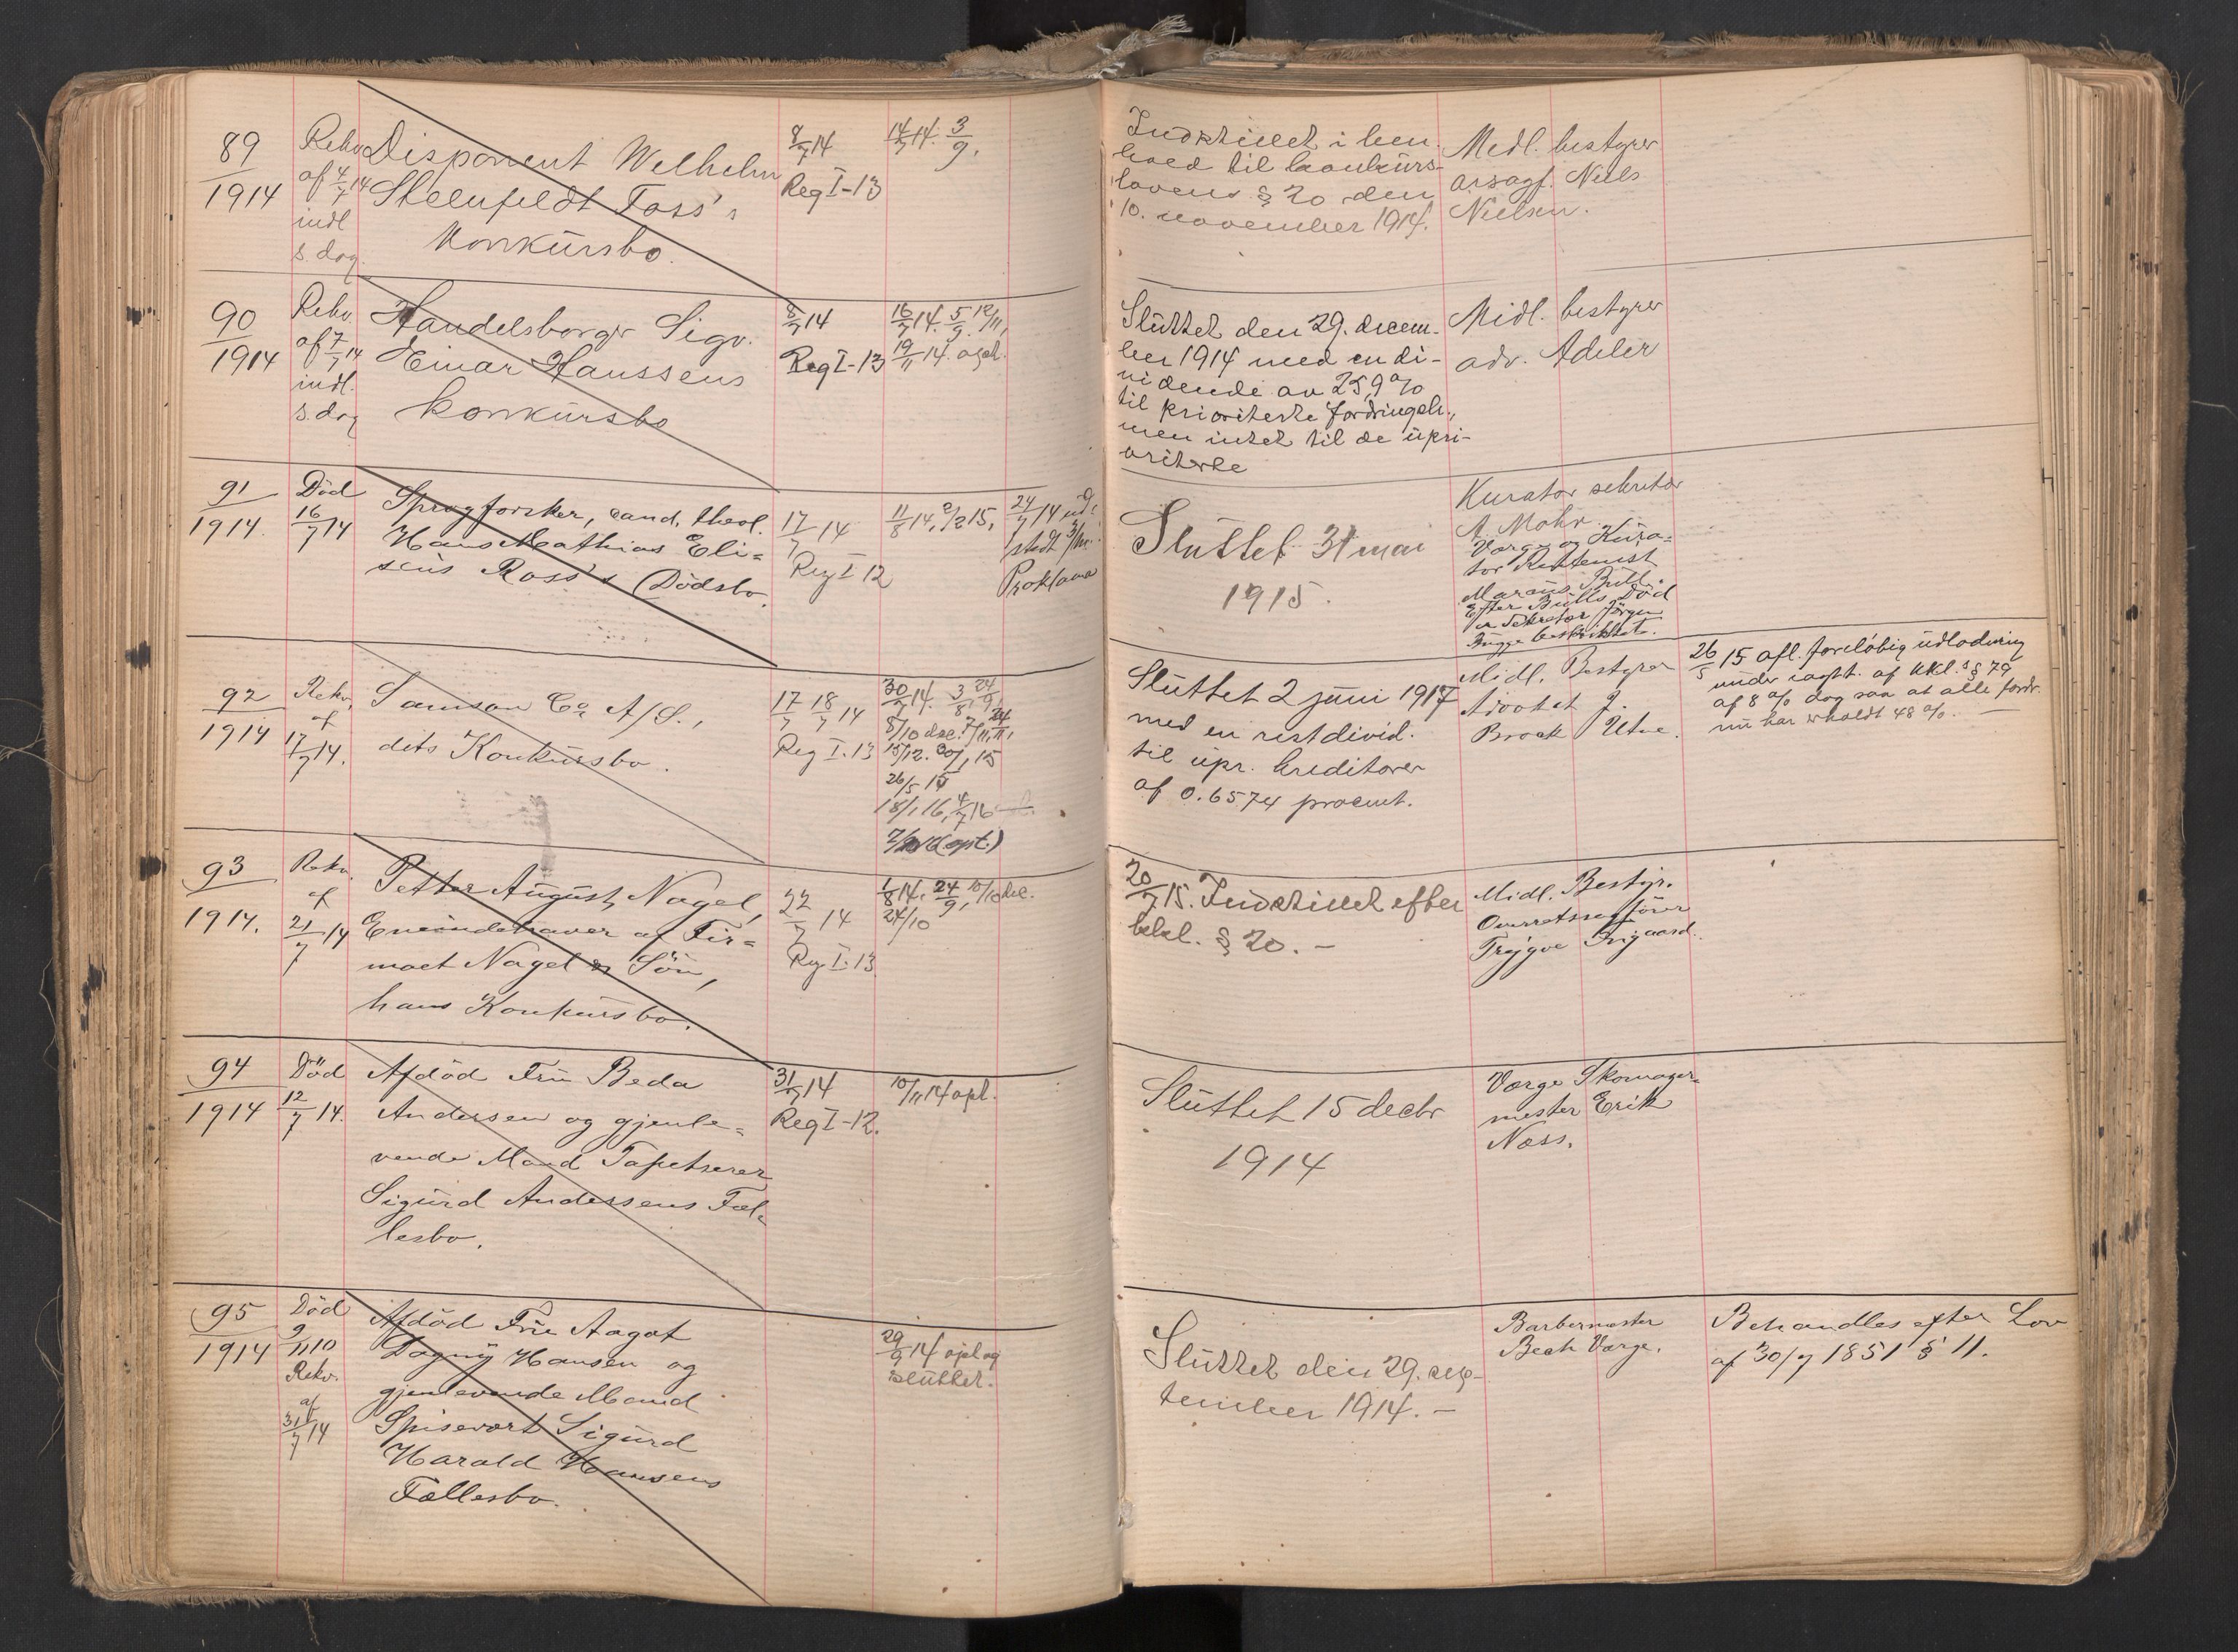 89
1914
Rekv.
af 4/7 14
indl
s. dag.
Disponent Welhelm
Steenfeldt Foss's
Konkursbo.
8/7 14
Reg I-13
14/7 14. 3/9.
Indstillet i hen
hold til konkurs-
lovens § 20 den
10. november 1914.
Midl. bestyrer
orsagf. Niels
Nielsen.
90
1914
Rekv.
af 7/7 14
indl.
s. dag
Handelsborger Sigv.
Einar Hanssens
konkursbo
8/7 14
Reg I-13
16/7 14. 5/9. 12/11,
19/11 14. opl.
Sluttet den 29. decem-
ber 1914 med en di-
vidende av 25,9 %
til prioriterte fordringsh.,
men intet til de upri-
oriterte
Midl. bestyrer
adv. Adeler
91
1914.
Død
16/7 14
Sprogforsker, cand. theol.
Hans Mathias Eli=
seus Ross's Dödsbo.
17/7 14
Reg I 12
11/8 14, 2/2 15,
24/7 14 ud=
stedt 3/m.
Proklama
Sluttet 31 mai
1915.
Kurator sekretær
A. Mohr.
Værge og Kura=
tor Rentemest
Marius Bull.
Efter Bulls Död
er Sekretær Jörgen
Bugge beskikket.
92
1914
Rekv.
af
17/7 14.
Samson Co A/S.,
dets Konkursbo.
17/7 18/7 14
Reg I. 13
30/7 14. 3/8, 24/9,
8/10 dec. 7/11, 24/11,
15/12. 30/1 15
26/5 15
18/1 16, 4/7 16
Sluttet 2 juni 1917
med en restdivid.
til upr. kreditorer
af 0.6574 procent.
Midl. Bestyrer
Advokat J.
Brock Utne.
26/5 15 afl. foreløbig udlodning
under iagtt. af kkl.s § 79
af 8 % dog saa at alle fordr.
nu har erholdt 48 %.
93
1914.
Rekv.
af
21/7 14
Petter August Nagel,
Eneindehaver af Fir=
maet Nagel & Sön,
hans Konkursbo.
22/7 14
Reg I. 13
1/8 14, 24/9, 10/10 dec.
24/10
20/7 15. Indstillet efter
kkl. § 20. -
Midl. Bestyr.
Overretssagförer
Trygve Wiigaard.
94
1914
Död
12/7 14.
Afdöd Fru Beda
Andersen og gjenle=
vende Mand Tapetserer
Sigurd Andersens Fæl=
lesbo.
31/7 14
Reg I-12.
10/11 14 opl.
Sluttet 15 decbr
1914
Værge Skomager=
mester Erik
Næss.
95
1914
Död
9/11 10
Rekv.
af
31/7 14
Afdöd Fru Aagot
Dagny Hansen og
gjenlevende Mand
Spisevært Sigurd
Harald Hansens
Fællesbo.
29/9 14 opl og
sluttet.
Sluttet den 29. sep-
tember 1914. -
Barbermester
Bech Værge.
Behandles efter Lov
af 30/7 1851 § 11.